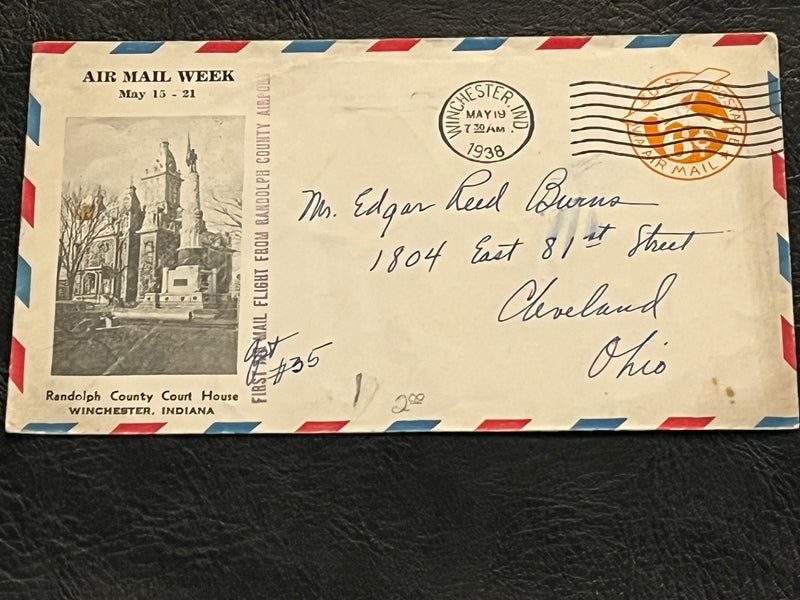 AIR MAIL WEEK
May 15 - 21
Randolph County Court House
WINCHESTER, INDIANA
FIRST AIR MAIL FLIGHT FROM RANDOLPH COUNTY AIRPORT
WINCHESTER, IND.
MAY 19
7 30 AM
1938
U.S. POSTAGE
VIA AIR MAIL
Mr. Edgar Reed Burns
1804 East 81st Street
Cleveland
Ohio
#35
1
2.00